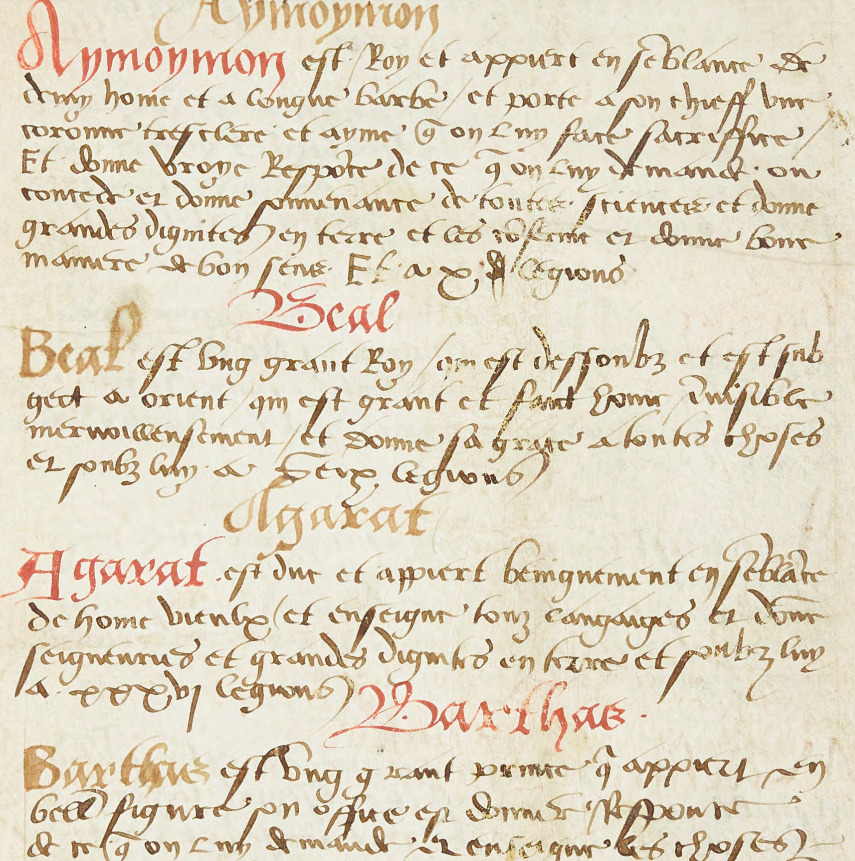 Aymoymon
Aymoymon est Roy et appiert en sēblance de
demy home et a longue barbe / et porte a son chieff une
coronne tresclere et ayme q̄ on luy face sacriffice /
Et donne vroye Respōce de ce q̄ on luy demande on
concede et donne souvenance de toutes sciences et donne
grandes dignites en terre et les cōferme et donne bone
maniere de bon sens. Et a x legions
Beal
Beal est ung grant Roy / qui est dessoubz et est sub
gect a orient qui est grant et faict home īnvisible
merveilleusement / et donne sa grace a toutes choses
et soubz luy a legions
Agarat
Agarat est duc et appiert benignement en sēblāce
de home vieulx / et enseigne touz langaiges et dōne
seigneuries et grandes dignites en terre et soubz luy
a xxxvj legions
Barthas.
Barthas est ung grant prince q̄ appiert en
belle figure son office est donner Responce
de ce q̄ on luy demande et enseigne les choses